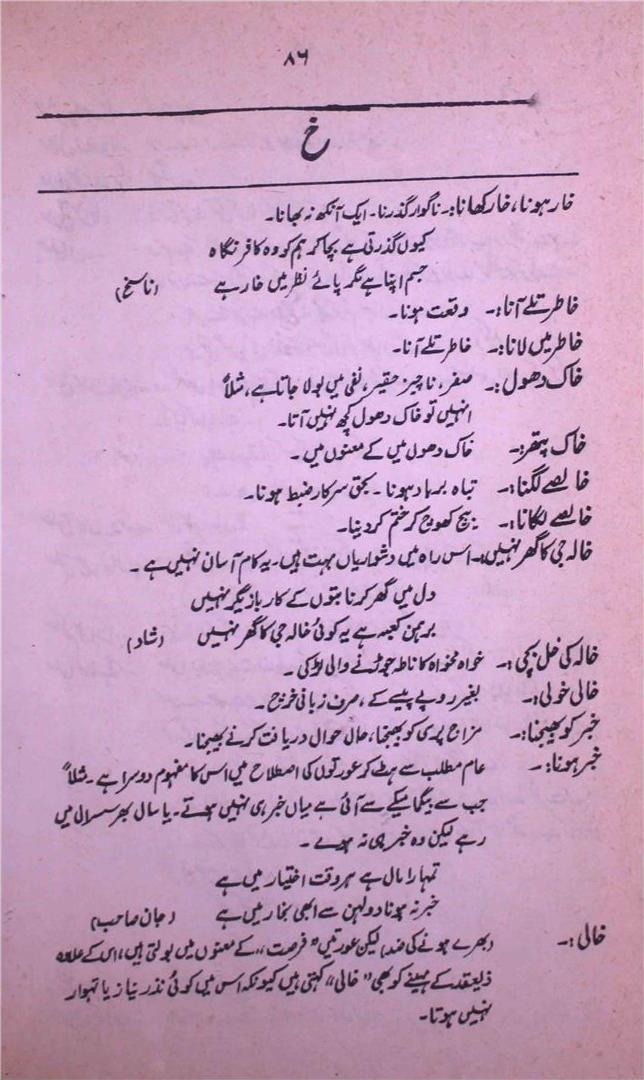 ۸۶
خ
خار ہونا، خار کھانا:۔ ناگوار گذرنا۔ ایک آنکھ نہ بھانا۔
کیوں گذرتی ہے بچا کر ہم کو وہ کافر نگاہ
جسم اپنا ہے مگر پائے نظر میں خار ہے (ناسخ)
خاطر تلے آنا:۔ وقعت ہونا۔
خاطر میں لانا:۔ خاطر تلے آنا۔
خاک دھول:۔ صفر، ناچیز حقیر، نفی میں بولا جاتا ہے، مثلاً
انہیں تو خاک دھول کچھ نہیں آتا۔
خاک پتھر:۔ خاک دھول میں کے معنوں میں۔
خالصے لگنا:۔ تباہ برباد ہونا۔ بحق سرکار ضبط ہونا۔
خالصے لگانا:۔ بیچ کھوچ کر ختم کر دینا۔
خالہ جی کا گھر نہیں:۔ اس راہ میں دشواریاں بہت ہیں۔ یہ کام آسان نہیں ہے۔
دل میں گھر کرنا بتوں کے کار بازیگر نہیں
برہمن کعبہ ہے یہ کوئی خالہ جی کا گھر نہیں (شاد)
خالہ کی خل بچی:۔ خواہ مخواہ کا ناطہ جوڑنے والی لڑکی۔
خالی خولی:۔ بغیر روپے پیسے کے، صرف زبانی خرچ۔
خبر کو بھیجنا:۔ مزاج پرسی کو بھیجنا، حال حوال دریافت کرنے بھیجنا۔
خبر ہونا:۔ عام مطلب سے ہٹ کر عورتوں کی اصطلاح میں اس کا مفہوم دوسرا ہے۔ مثلاً
جب سے بیگما میکے سے آئی ہے میاں خبر ہی نہیں ہوتے۔ یا سال بھر سسرال میں
رہے لیکن وہ خبر ہی نہ ہوے۔
تمہارا مال ہے ہر وقت اختیار میں ہے
خبر نہ ہونا دولہن سے ابھی بخار میں ہے (جان صاحب)
خالی:۔ (بھرے ہونے کی ضد) لیکن عورتیں "فرصت" کے معنوں میں بولتی ہیں، اس کے علاوہ
ذیلعقد کے مہینے کو بھی "خالی" کہتی ہیں کیونکہ اس میں کوئی نذر نیاز یا تہوار
نہیں ہوتا۔